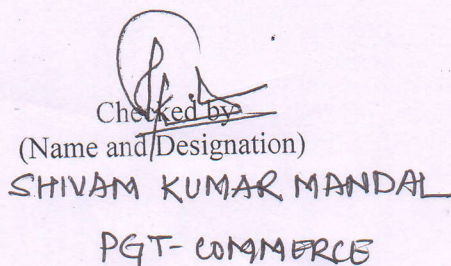 Checked by
(Name and Designation)
SHIVAM KUMAR MANDAL
PGT- COMMERCE